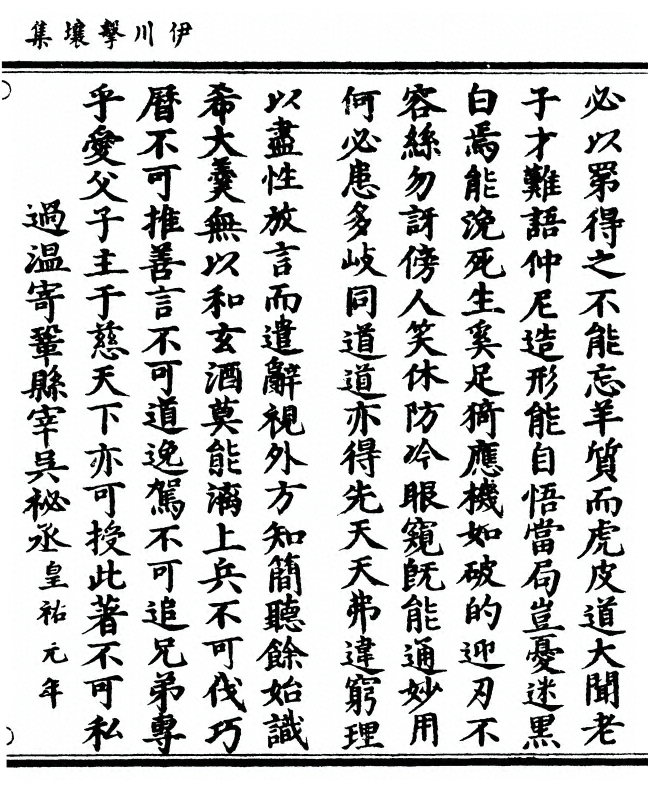 伊川擊壤集
必以第得之不能忘羊質而虎皮道大聞老
子才難語仲尼造形能自悟當局豈憂迷黑
白焉能浼死生奚足猗應機如破的迎刃不
容絲勿訝傍人笑休防冷眼窺旣能通妙用
何必患多岐同道道亦得先天天弗違窮理
以盡性放言而遣辭視外方知簡聽餘始識
希大羹無以和玄酒莫能漓上兵不可伐巧
曆不可推善言不可道逸駕不可追兄弟專
乎愛父子主于慈天下亦可授此著不可私
過溫寄鞏縣宰吳祕丞皇祐元年